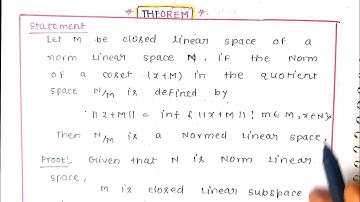 THEOREM
Statement
Let M be closed linear space of a
norm linear space N. if the Norm
of a coset (x+M) in the quotient
space N/M is defined by
||x+M|| = inf { ||x+M|| ! m∈M, x∈N}
Then N/M is a Normed linear space.
Proof: Given that N is Norm linear
space,
M is closed linear subspace